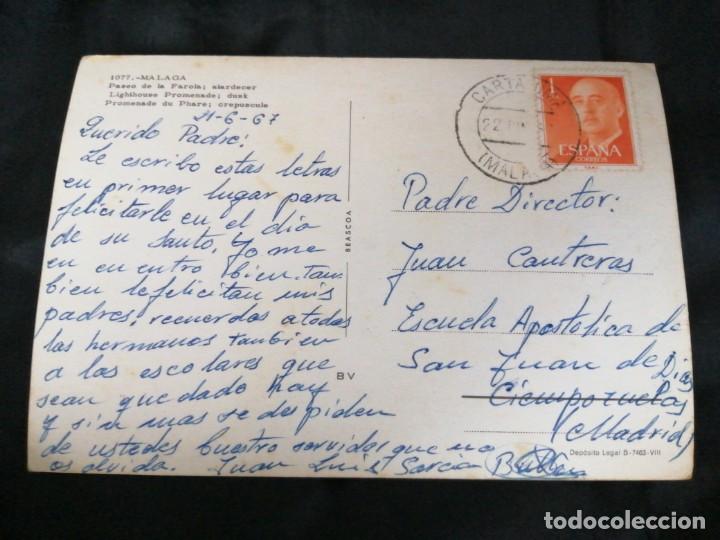 1077.-MALAGA
Paseo de la Farola; atardecer
Lighthouse Promenade; dusk
Promenade du Phare; crepuscule
21-6-67
Querido Padre:
Le escribo estas letras
en primer lugar para
felicitarle en el dia
de su Santo. Yo me
en cuentro bien. Tam
bien le felicitan mis
padres, recuerdos a todos
los hermanos Tambien
a los escolares que
sean quedado hay
Y sin mas se despiden
de ustedes buestro servidor que no
os olvida. Juan Luis Garcia
BEASCOA
BV
CARTA
22
(MALA
1
ESPAÑA
CORREOS
Padre Director:
Juan Contreras
Escuela Apostolica de
San Juan de Dios
Ciempozuelos
(Madrid)
Depósito Legal B-7463-VIII
todocoleccion
todocoleccion.net